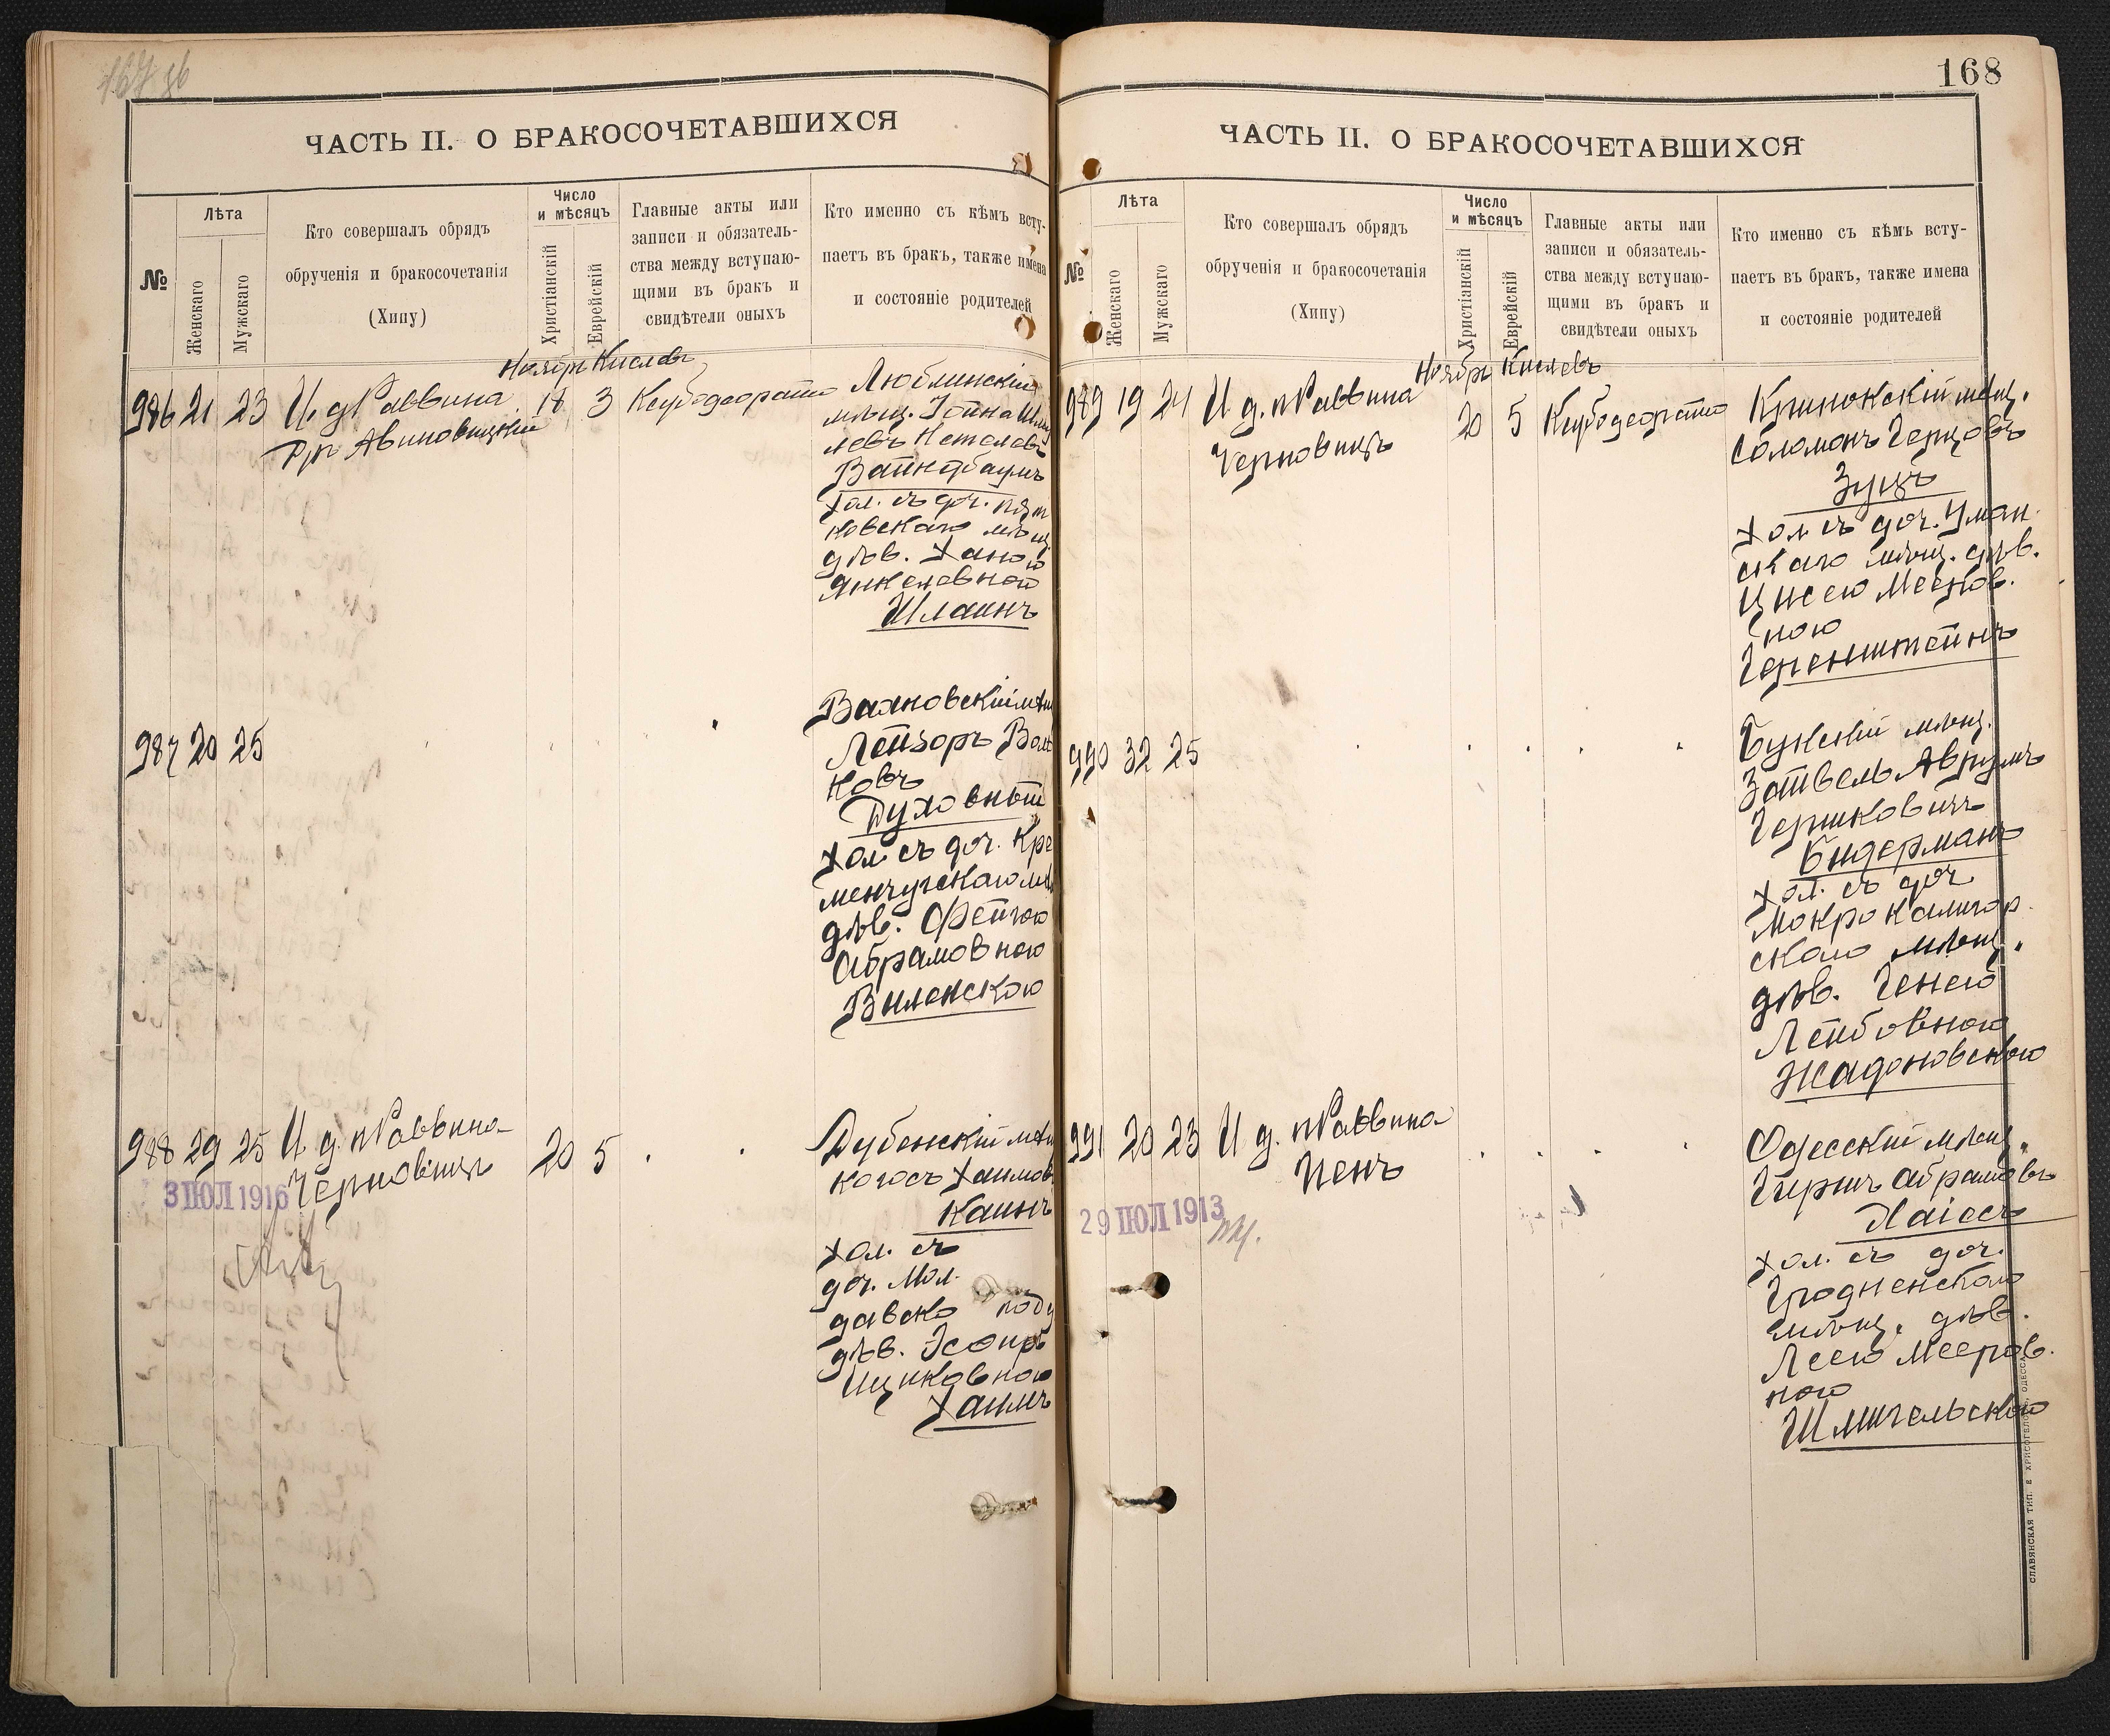 167 об
ЧАСТЬ II. О БРАКОСОЧЕТАВШИХСЯ
№
Лѣта
Женскаго
Мужскаго
Кто совершалъ обрядъ
обрученія и бракосочетанія
(Хипу)
Число
и мѣсяцъ
Христіанскій
Еврейскій
Главные акты или
записи и обязатель-
ства между вступаю-
щими въ бракъ и
свидѣтели оныхъ
Кто именно съ кѣмъ всту-
паетъ въ бракъ, также имена
и состояніе родителей
Ноябрь Кислевъ
986 21 23 И. д. Раввина 18 3
Авиновицкій
Люблинскій
мѣщ. Іойна
Вайнбаумъ
Хол. съ доч.
ковскаго мѣщ
дѣв. Ханою
Янкелевною
987 20 25
мѣщ
Лейзоръ Воль
ковъ
Духовный
Хол. съ доч. Кре
менчугскаго мѣщ
дѣв. Фейгою
Абрамовною
Виленскою
988 29 25 И. д. Раввина 20 5
Черновицъ
3 ІЮЛ 1916
Дубенскій мѣщ
Хаимов
Кацнъ
Хол. съ
доч. Мол.
давско
дѣв. Эсфирь
Ициковною
Хаимъ
168
ЧАСТЬ II. О БРАКОСОЧЕТАВШИХСЯ
№
Лѣта
Женскаго
Мужскаго
Кто совершалъ обрядъ
обрученія и бракосочетанія
(Хипу)
Число
и мѣсяцъ
Христіанскій
Еврейскій
Главные акты или
записи и обязатель-
ства между вступаю-
щими въ бракъ и
свидѣтели оныхъ
Кто именно съ кѣмъ всту-
паетъ въ бракъ, также имена
и состояніе родителей
Ноябрь Кислевъ
989 19 24 И. д. Раввина 20 5
Черновицъ
Крынокскій мѣщ.
Соломонъ Герцовъ
Зуцъ
Хол. съ доч. Уман.
скаго мѣщ. дѣв.
Мееров.
ною
Геренштейнъ
990 32 25
мѣщ.
Зайвель Аврумъ
Гершковичъ
Бидерманъ
Хол. съ доч.
Мокрокалигор.
скаго мѣщ.
дѣв. Генею
Лейбовною
Жадоновскою
991 20 23 И. д. Раввина
Пенъ
29 ІЮЛ 1913
Одесскій мѣщ.
Гершъ Абрамовъ
Хаісъ
Хол. съ доч.
Гродненскаго
мѣщ. дѣв.
Леею Мееров.
ною
Шмигельскою
СЛАВЯНСКАЯ ТИП. Е. ХРИСОГЕЛОСЪ, ОДЕССА.